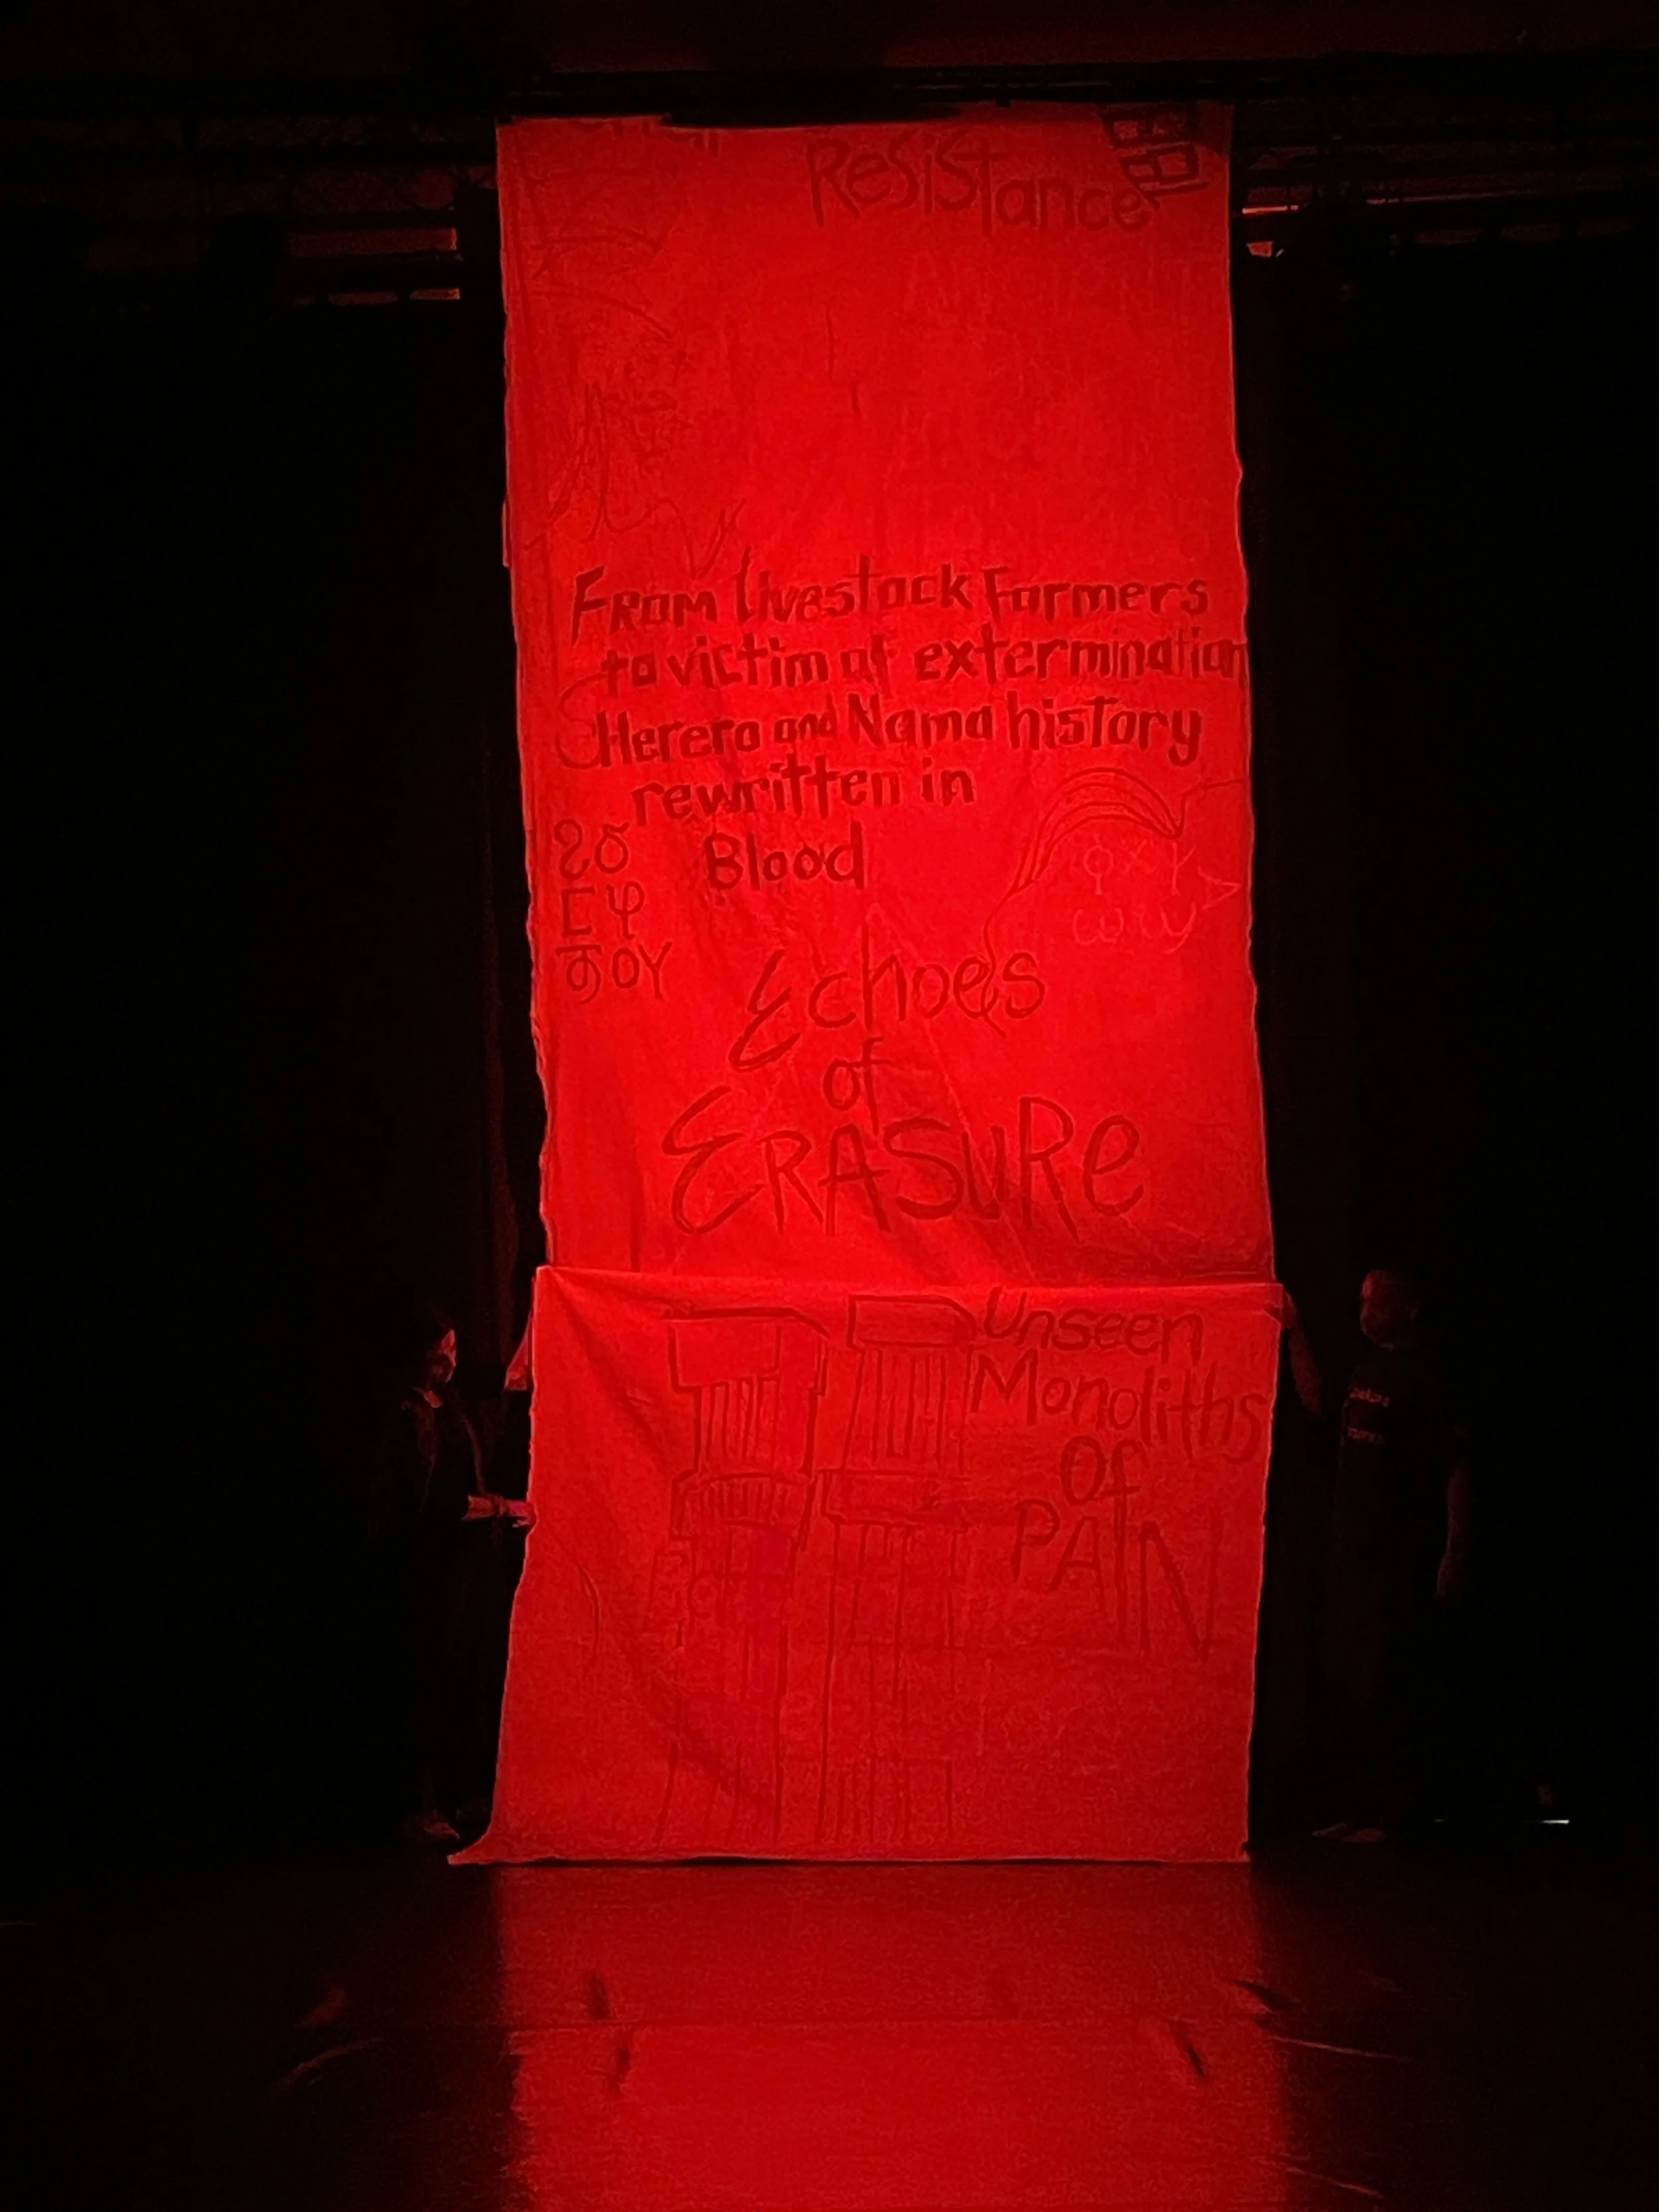 Resistance
From livestock Farmers
to victim of extermination
Herero and Nama history
rewritten in
Blood
Echoes
of
ERASURe
Unseen
Monoliths
Of
PAIN